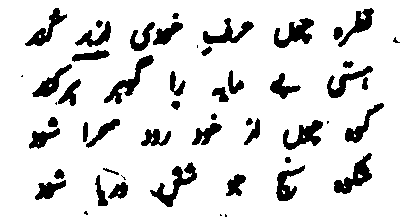 قطرہ چوں حرفِ خودی ازبر کند
ہستی بے مایہ را گوہر کند
کوہ چوں از خود رود صحرا شود
شکوہ سنج جوشش دریا شود